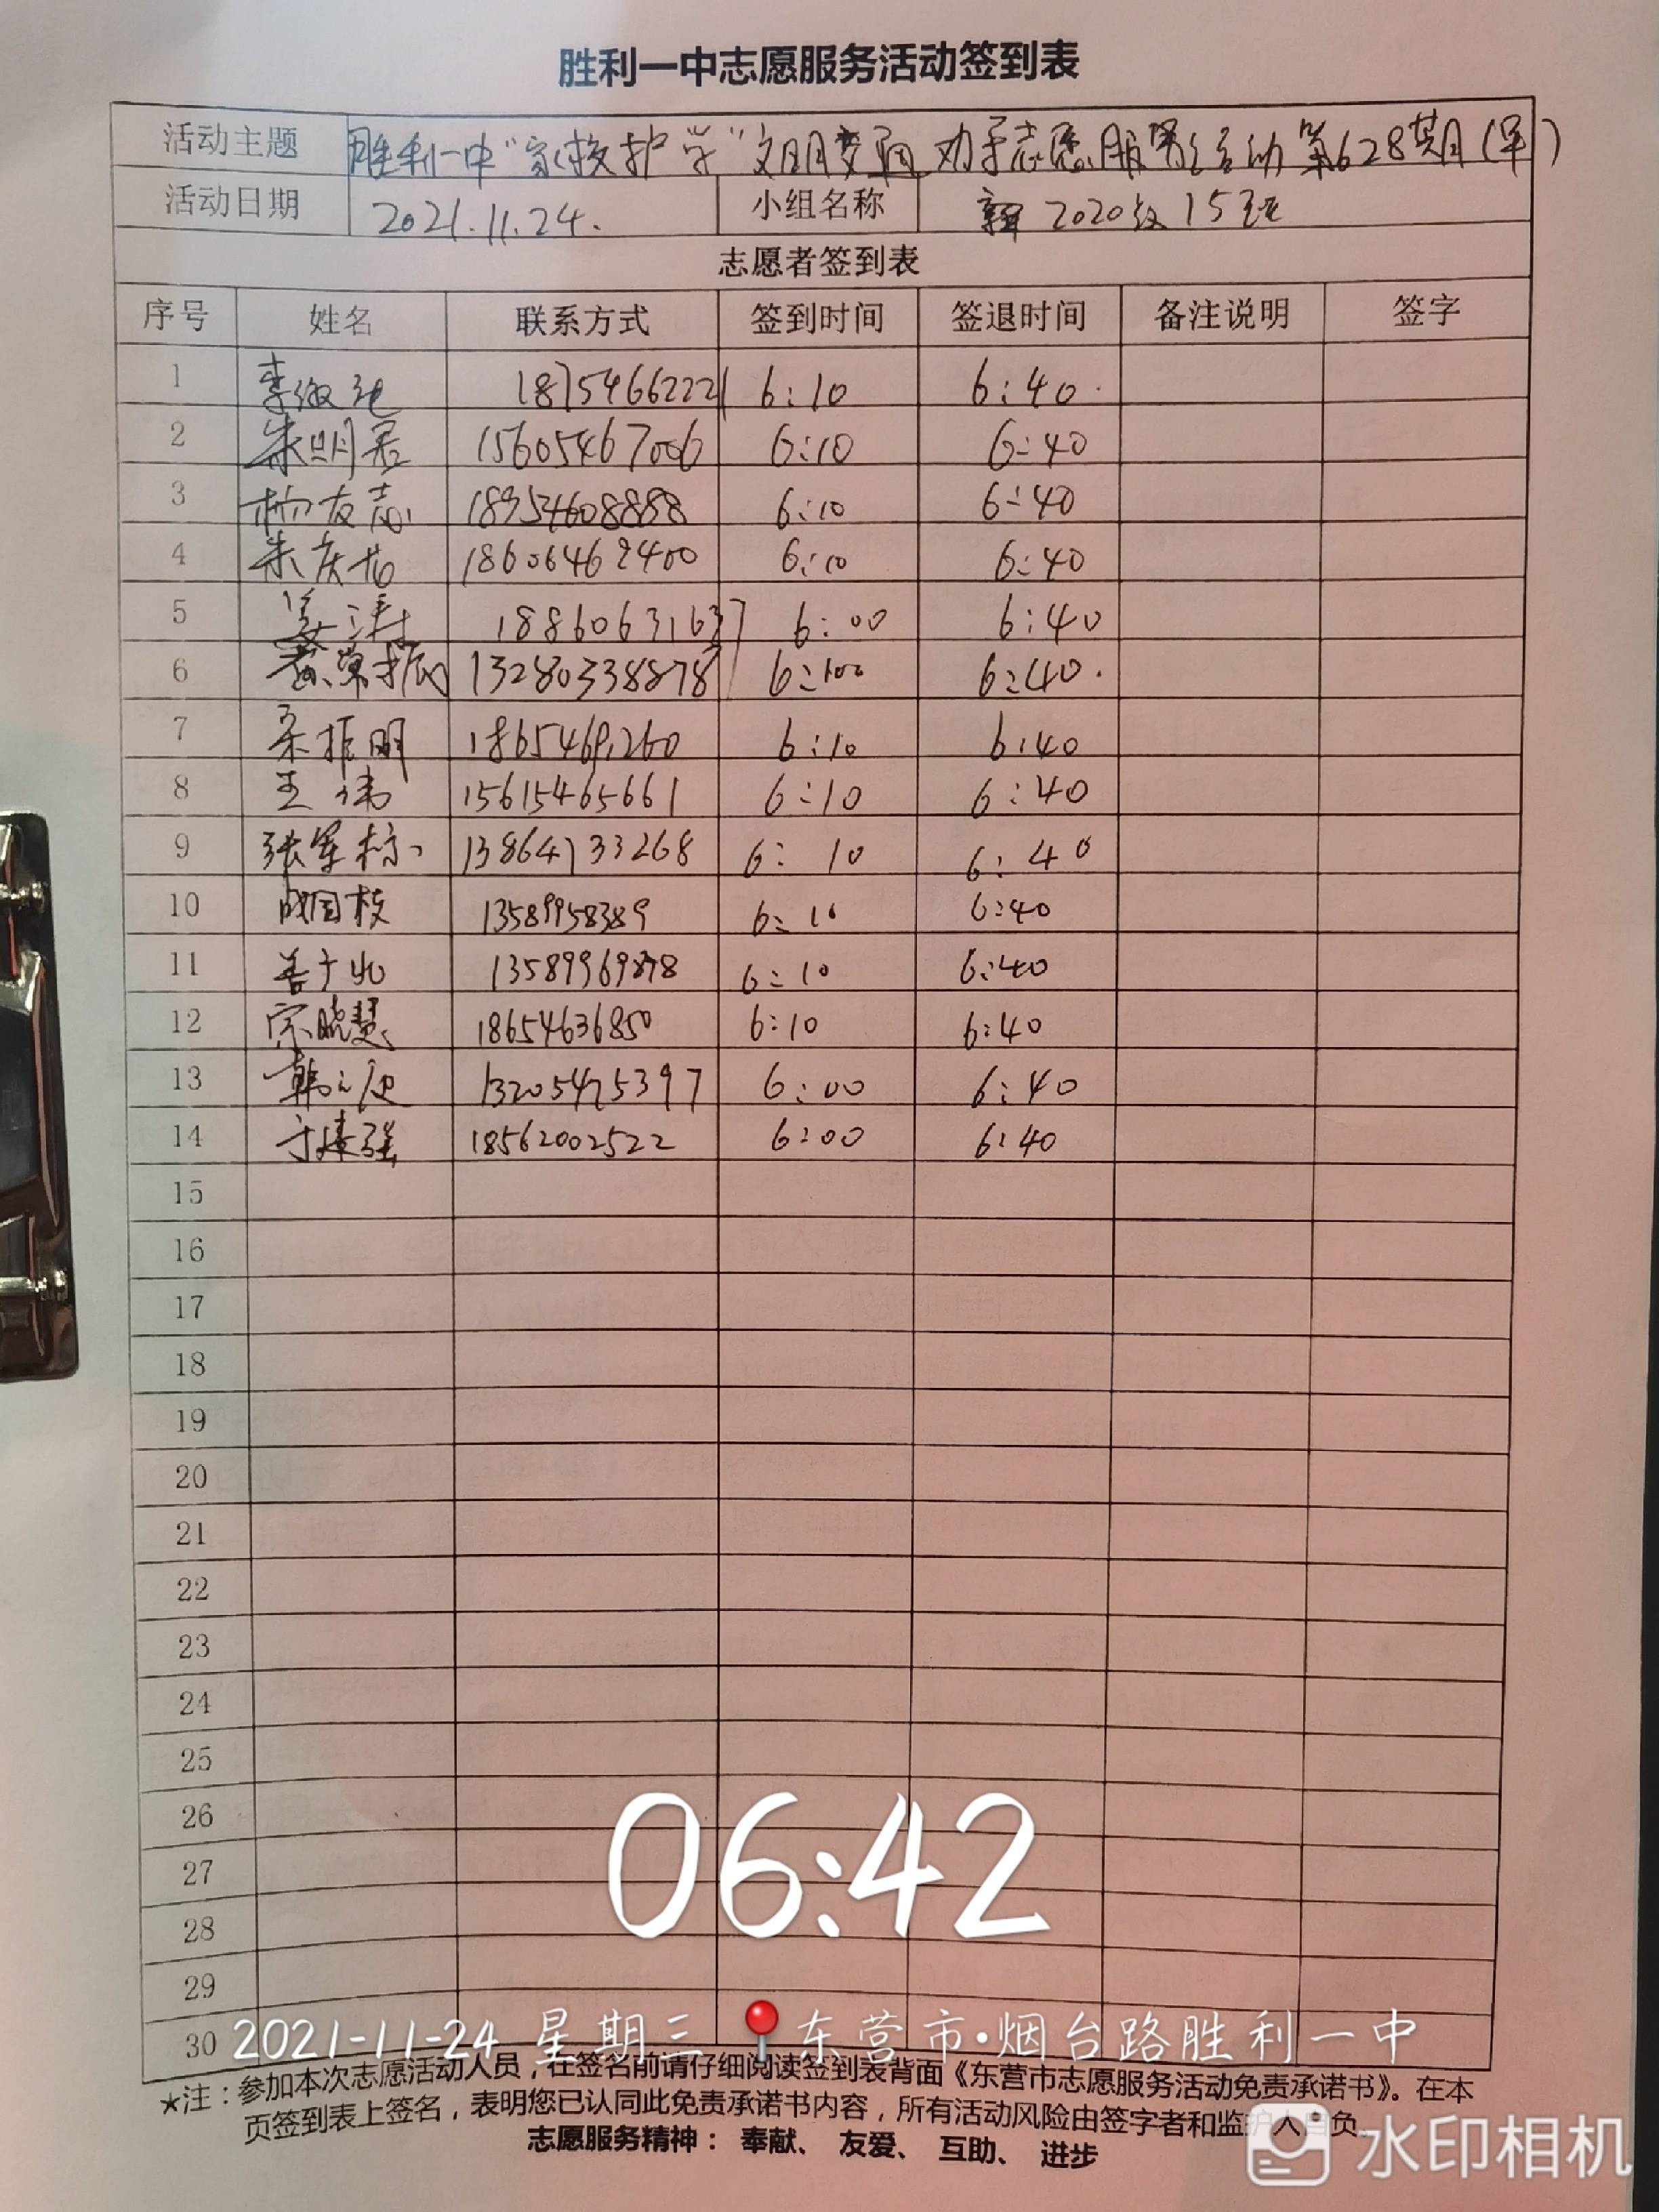 胜利一中志愿服务活动签到表
活动主题 胜利一中"家校护学"文明交通劝导志愿服务活动第628期(早)
活动日期 2021.11.24. 小组名称 2020级15班
志愿者签到表
序号 姓名 联系方式 签到时间 签退时间 备注说明 签字
1 18754662221 6:10 6:40.
2 朱明君 15605467006 6:10 6:40
3 杨友志 18954608888 6:10 6:40
4 朱庆 18606462400 6:10 6:40
5 姜涛 18860631637 6:00 6:40
6 13280338878 6:00 6:40.
7 振明 18654691260 6:10 6:40
8 王伟 15615465661 6:10 6:40
9 张军标 13864733268 6:10 6:40
10 成国枝 13589958389 6:10 6:40
11 13589969878 6:10 6:40
12 宗晓慧 18654636850 6:10 6:40
13 韩 13205475397 6:00 6:40
14 于建强 18562002522 6:00 6:40
15
16
17
18
19
20
21
22
23
24
25
26
06:42
27
28
29
30
2021-11-24 星期三 东营市·烟台路胜利一中
★注：参加本次志愿活动人员，在签名前请仔细阅读签到表背面《东营市志愿服务活动免责承诺书》。在本
页签到表上签名，表明您已认同此免责承诺书内容，所有活动风险由签字者和监护人自负。
志愿服务精神： 奉献、 友爱、 互助、 进步
水印相机